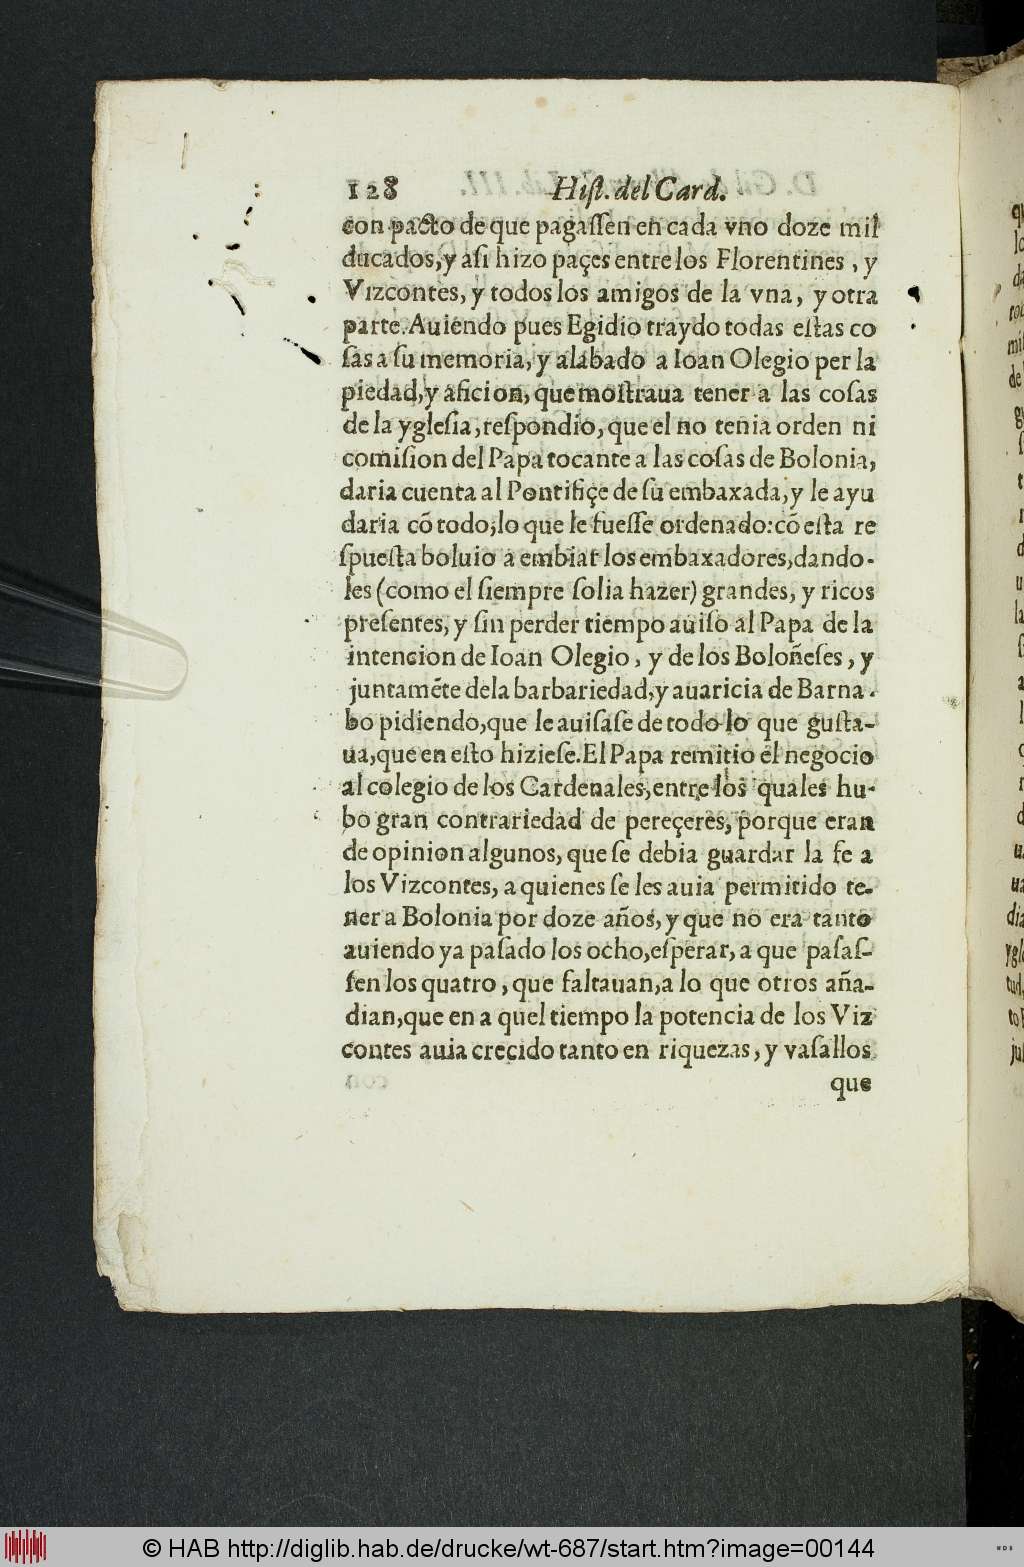 128 Hiſt. del Card.
con pacto de que pagaſſen en cada vno doze mil
ducados, y aſi hizo paçes entre los Florentines, y
Vizcontes, y todos los amigos de la vna, y otra
parte. Auiendo pues Egidio traydo todas eſtas co
ſas a ſu memoria, y alabado a Ioan Olegio per la
piedad, y aficion, que moſtraua tener a las coſas
de la ygleſia, reſpondio, que el no tenia orden ni
comiſion del Papa tocante a las coſas de Bolonia,
daria cuenta al Pontifiçe de ſu embaxada, y le ayu
daria cõ todo, lo que le fueſſe ordenado: cõ eſta re
ſpueſta boluio a embiar los embaxadores, dando-
les (como el siempre ſolia hazer) grandes, y ricos
preſentes, y ſin perder tiempo auiſo al Papa de la
intencion de Ioan Olegio, y de los Boloñeſes, y
juntamẽte dela barbariedad, y auaricia de Barna-
bo pidiendo, que le auiſaſe de todo lo que guſta-
ua, que en eſto hizieſe. El Papa remitio el negocio
al colegio de los Cardenales, entre los quales hu-
bo gran contrariedad de pereçeres, porque eran
de opinion algunos, que ſe debia guardar la fe a
los Vizcontes, a quienes ſe les auia permitido te-
ner a Bolonia por doze años, y que no era tanto
auiendo ya paſado los ocho, eſperar, a que paſaſ-
ſen los quatro, que faltauan, a lo que otros aña-
dian, que en a quel tiempo la potencia de los Viz
contes auia crecido tanto en riquezas, y vaſallos
que
© HAB http://diglib.hab.de/drucke/wt-687/start.htm?image=00144